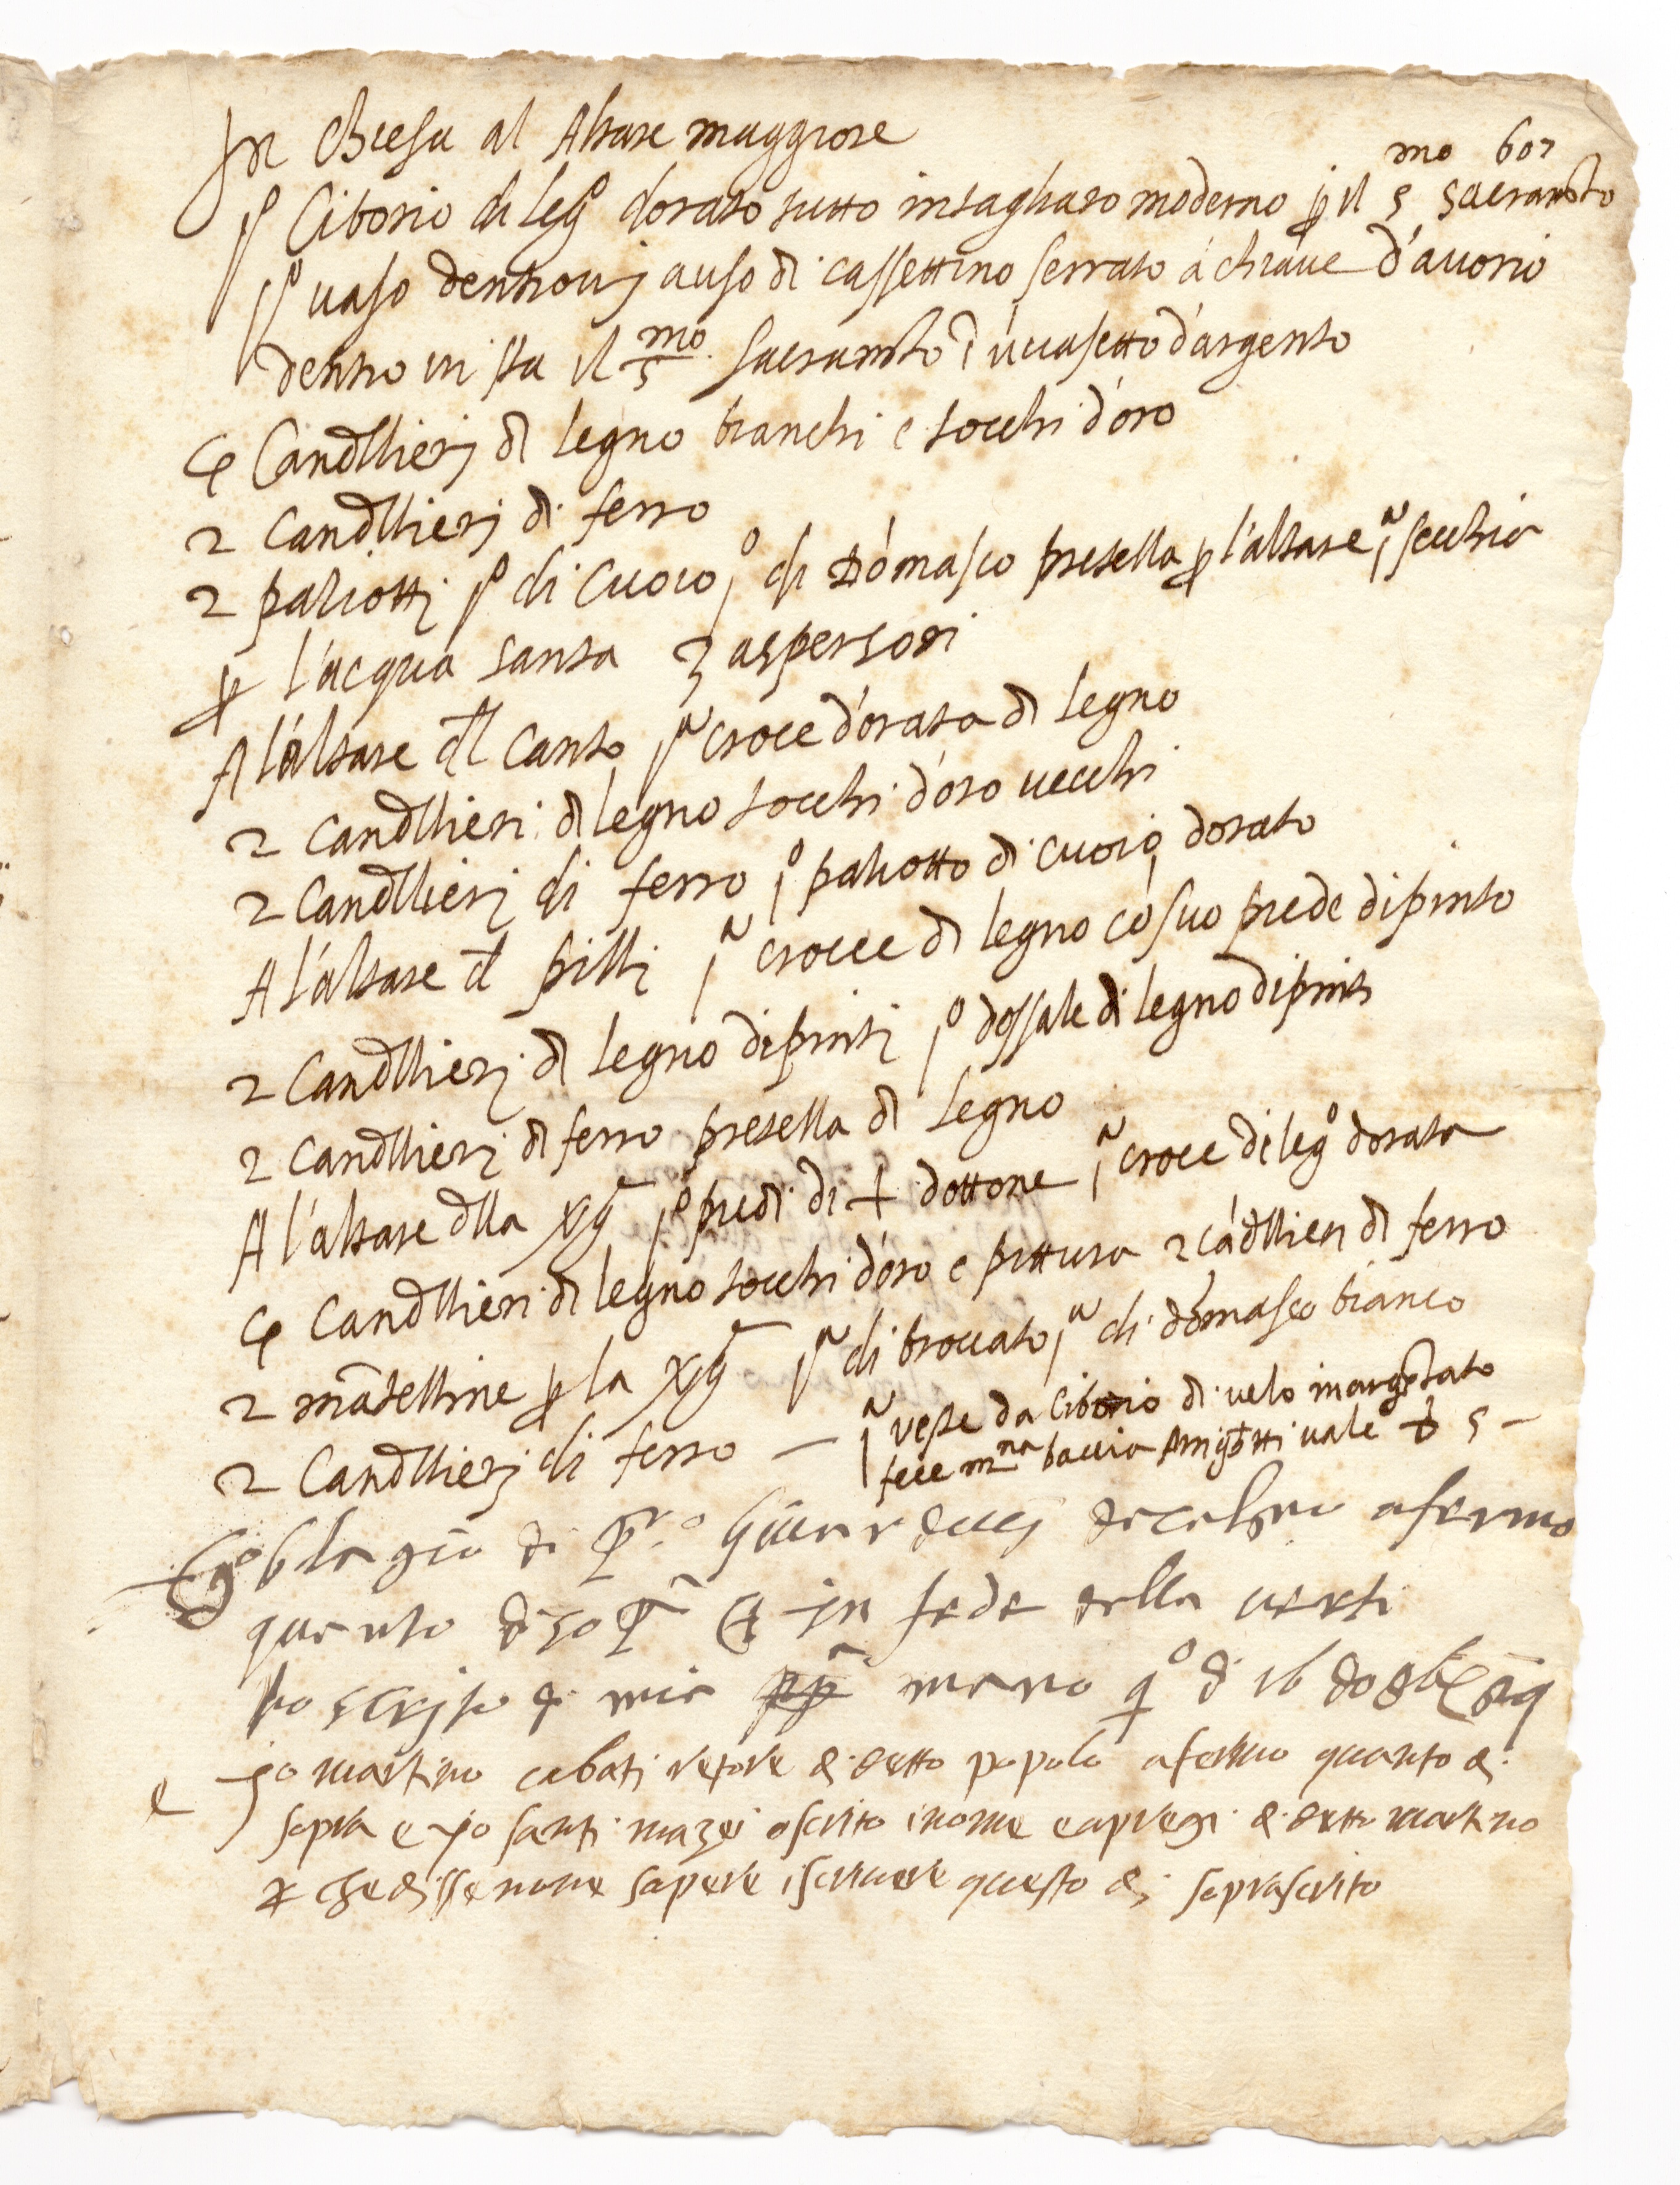 In Chiesa al Altare maggiore
607
p.º Ciborio di leg.º dorato tutto intagliato moderno p il S.mo Sacramto
p.º vaso dentrovj a uso di cassettino serrato à chiave d'avorio
dentro vi sta il S.mo Sacramto ì ù vasetto d'argento
4 Candllierj di legno bianchi e tocchi d'oro
2 Candllierj di ferro
2 paliottj p.º di Cuoio j.º di Domasco predella p l'altare j.ª secchia
p l'acqua santa 3 aspersori
A l'altare dl Canto p.ª croce d'orata di legno
2 Candllieri di legno tocchi d'oro vecchi
2 Candllierj di ferro j.º paliotto di cuoio dorato
A l'altare d pillj j.ª crocee di legno cō suo piede dipinto
2 Candllierj di legno dipintj j.º dossale di legno dipinto
2 Candllierj di ferro predella di legno
A l'altare dlla j.º piedi di + dottone j.ª croce di leg.º dorata
4 Candllieri di legno tocchi d'oro e pittura 2 cādllieri di ferro
2 mātelline p la j.ª di broccato j.ª di domasco bianco
2 Candllierj di ferro — j.ª veste da Ciborio di velo inargētato
fece m.na baccia vale 5 –
di afermo
quanto di sop.ª Et in fede della
ho scrjto di mia mano
e jo martino cabati retore di detto popolo afermo quanto di
sopra e jo santi mazei o scrito i nome e apregi di detto martino
p che disse none sapere iscrivere questo dj soprascrito